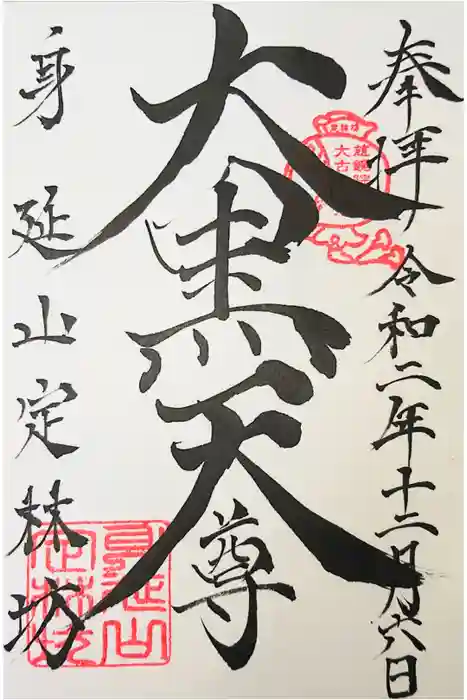 奉拝 令和二年十二月六日
大黒天尊
身延山定林坊
身延山定林坊